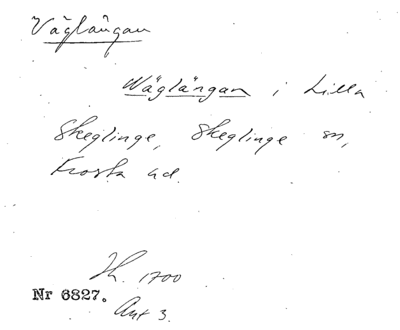 Väglängan
Wäglängan i Lilla
Skeglinge, Skeglinge sn,
Frosta hd.
Jb. 1700
Nr 6827.
Ant 3.